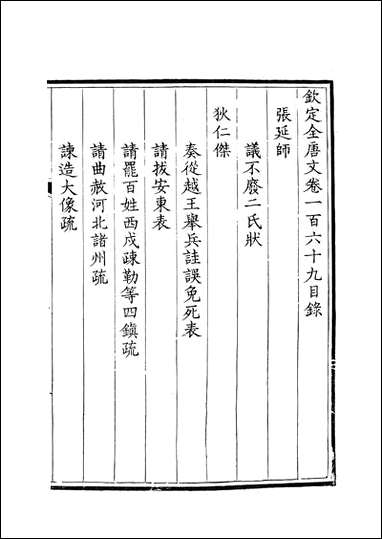 欽定全唐文卷一百六十九目錄
張延師
議不廢二氏狀
狄仁傑
奏從越王舉兵詿誤免死表
請拔安東表
請罷百姓西戍疎勒等四鎮疏
請曲赦河北諸州疏
諫造大像疏